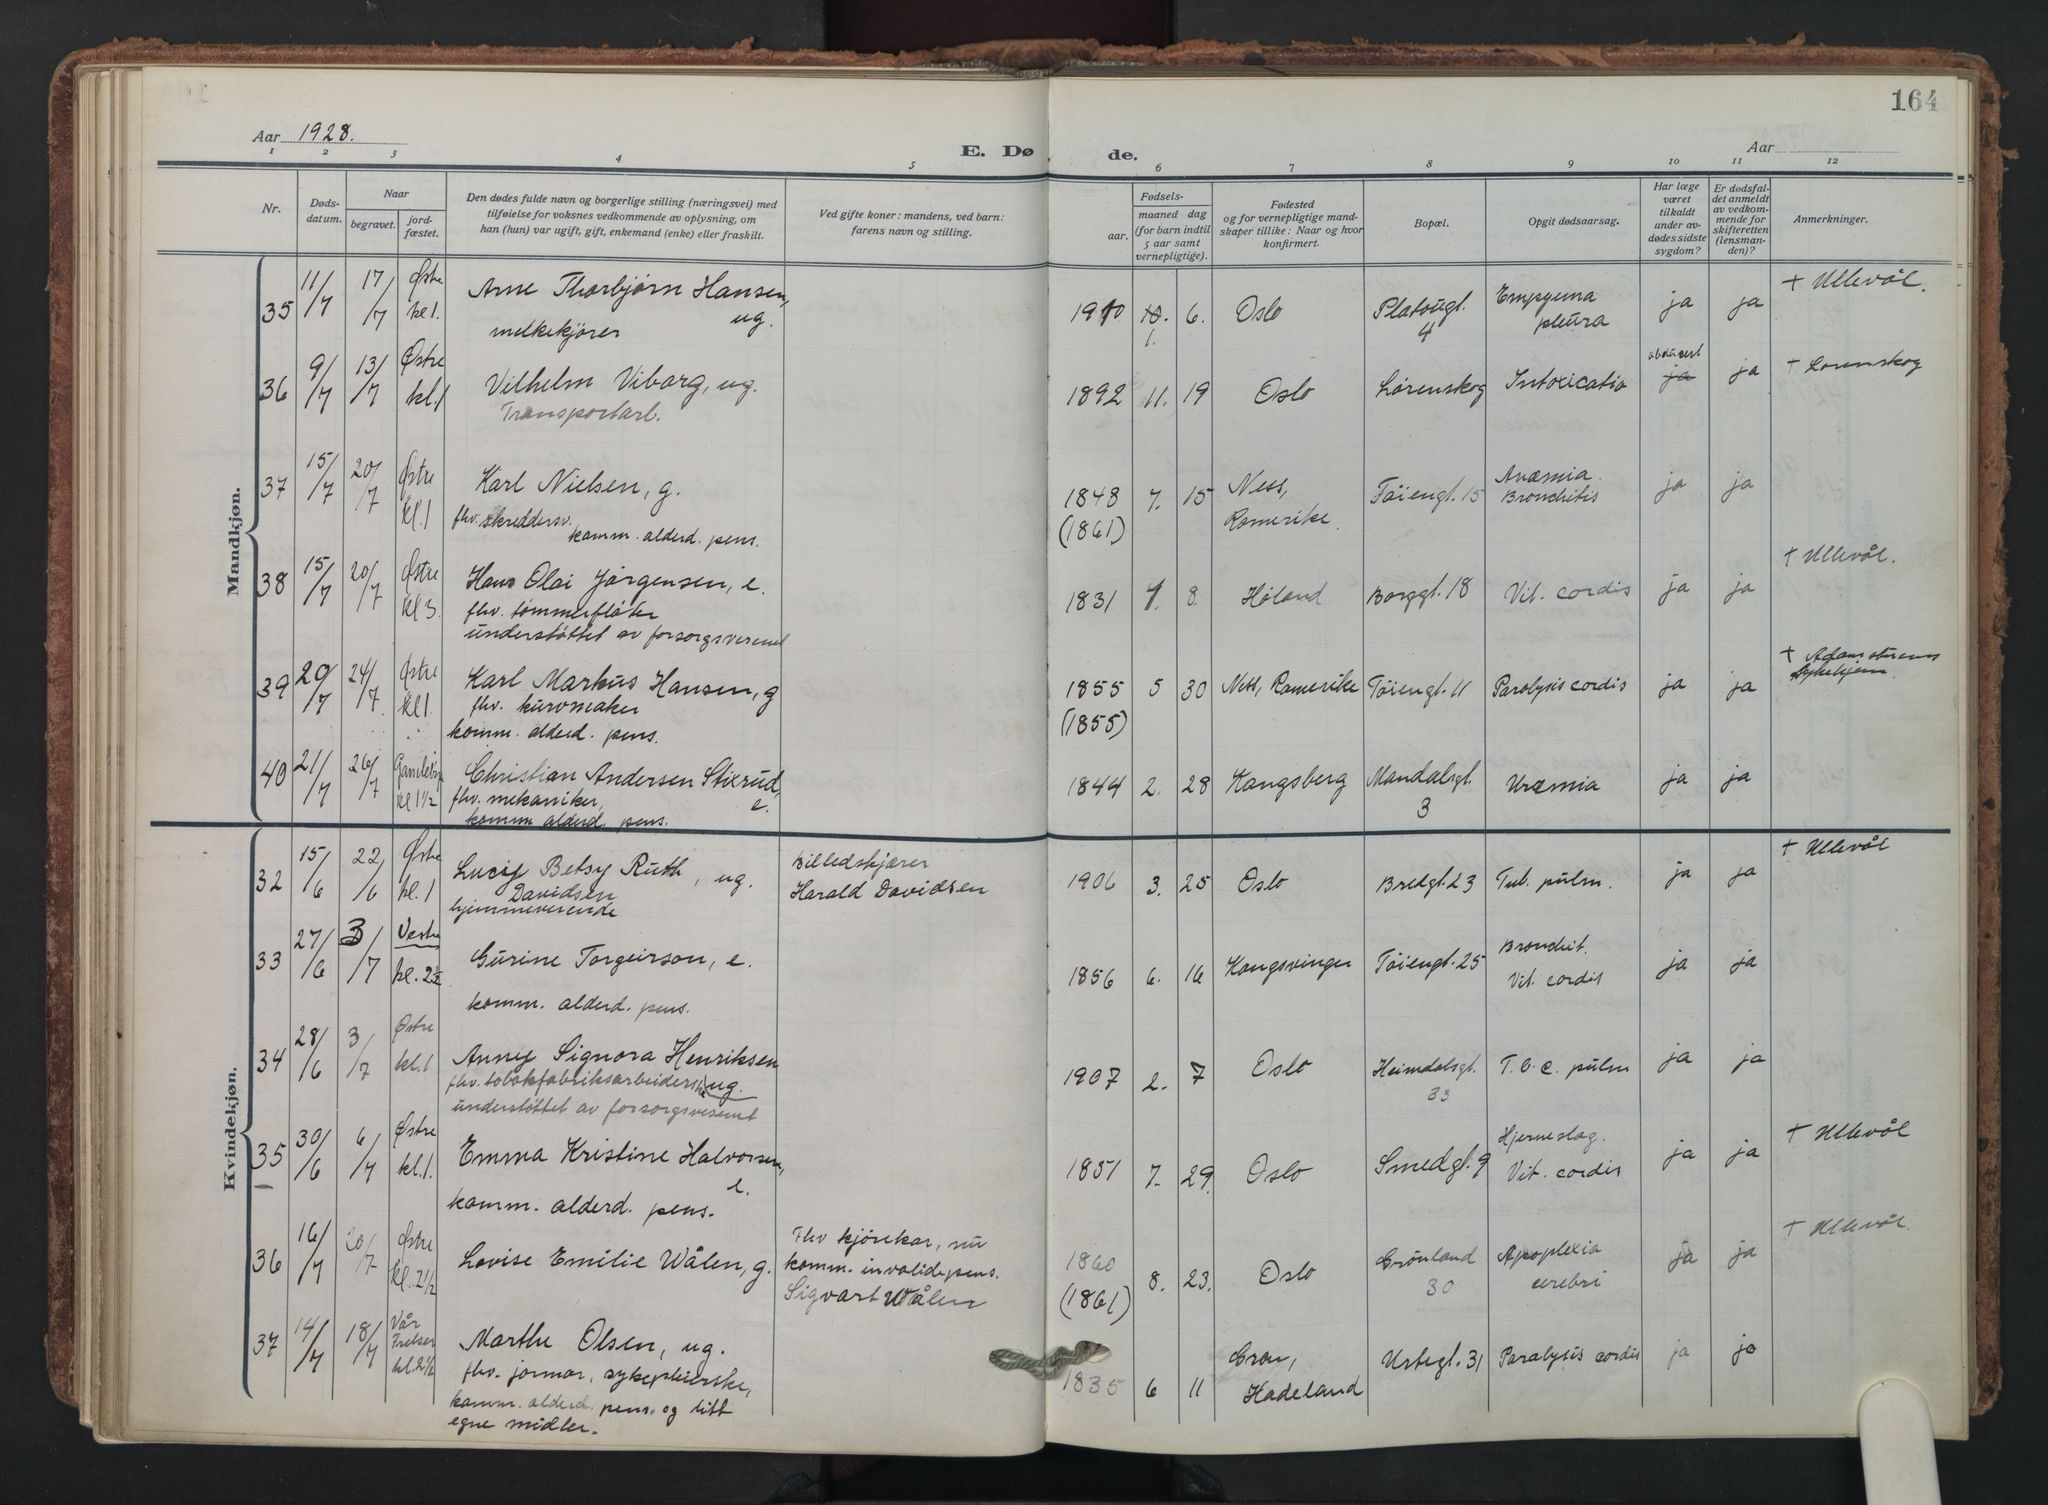 164
Aar 1928.
E. Dø de.
Aar
1 2 3 4 5 6 7 8 9 10 11 12
Nr.
Døds-
datum.
Naar
begravet.
jord-
fæstet.
Den dødes fulde navn og borgerlige stilling (næringsvei) med
tilføielse for voksnes vedkommende av oplysning, om
han (hun) var ugift, gift, enkemand (enke) eller fraskilt.
Ved gifte koner: mandens, ved barn:
farens navn og stilling.
Fødsels-
aar.
maaned dag
(for barn indtil
5 aar samt
vernepligtige).
Fødested
og for vernepligtige mand-
skaper tillike: Naar og hvor
konfirmert.
Bopæl.
Opgit dødsaarsag.
Har læge
været
tilkaldt
under av-
dødes sidste
sygdom?
Er dødsfal-
det anmeldt
av vedkom-
mende for
skifteretten
(lensman-
den)?
Anmerkninger.
Mandkjøn.
35 11/7 17/7 Østre kl 1. Arne Thorbjørn Hansen, ug.
melkekjører
1910 10. 6. Oslo Platougt. 4 Empyema pleura ja ja + Ullevål.
1.
36 9/7 13/7 Østre kl. 1 Vilhelm Viborg, ug.
Transportarb.
1892 11. 19 Oslo Lørenskog Intoxicatio ja ja + Lørenskog
37 15/7 20/7 Østre kl. 1 Karl Nielsen, g.
fhv. skreddersv.
komm. alderd. pens.
1848 (1861) 7. 15 Ness, Romerike. Tøiengt. 15 Anæmia. Bronchitis ja ja
38 15/7 20/7 Østre kl 3. Hans Olai Jørgensen, e.
fhv. tømmerfløter
understøttet av forsorgsvesenet
1831 7. 8. Høland Borggt. 18 Vit. cordis ja ja + Ullevål.
39 20/7 24/7 Østre kl 1. Karl Markus Hansen, g
fhv. kurvmaker
komm. alderd. pens.
1855 (1855) 5 30 Ness, Romerike Tøiengt. 11 Paralysis cordis ja ja + Sykehjem.
40 21/7 26/7 Gamlebyen kl 1 1/2 Christian Andersen Stierud, e.
fhv. mekaniker,
komm. alderd. pens.
1844 2. 28 Kongsberg Mandalsgt. 3 Uræmia ja ja
Kvindekjøn.
32 15/6 22/6 Østre kl. 1 Lucy Betsy Ruth Davidsen, ug.
hjemmeværende
Billedskjærer
Harald Davidsen
1906 3. 25 Oslo Bredgt. 23 Tub. pulm. ja ja + Ullevål
33 27/6 3/7 Vestre kl. 2 1/2 Gurine Torgeirson, e.
komm. alderd. pens.
1856 6. 16 Kongsvinger Tøiengt. 25 Bronchit. Vit. cordis ja ja
34 28/6 3/7 Østre kl. 1 Anny Signora Henriksen
fhv. tobakfabriksarbeiderske, ug.
understøttet av forsorgsvesenet
1907 2. 7 Oslo Heimdalsgt. 33 T. b. c. pulm ja ja
35 30/6 6/7 Østre kl. 1. Emma Kristine Halvorsen, e.
komm. alderd. pens.
1851 7. 29. Oslo Smedgt. 9 Hjerneslag. Vit. cordis ja ja + Ullevål
36 16/7 20/7 Østre kl. 2 1/2 Lovise Emilie Wålen, g.
Fhv kjørekar, nu
komm. invalidepens.
Sigvart Wålen
1860 (1861) 8. 23. Oslo Grønland 30 Apoplexia cerebri ja ja + Ullevål.
37 14/7 18/7 Vår Frelser kl. 2 1/2 Marthe Olsen, ug.
fhv. jormor, sykepleierske,
komm. alderd. pens. og litt
egne midler.
1835 6 11 Gran, Hadeland Urtegt. 31 Paralysis cordis ja ja